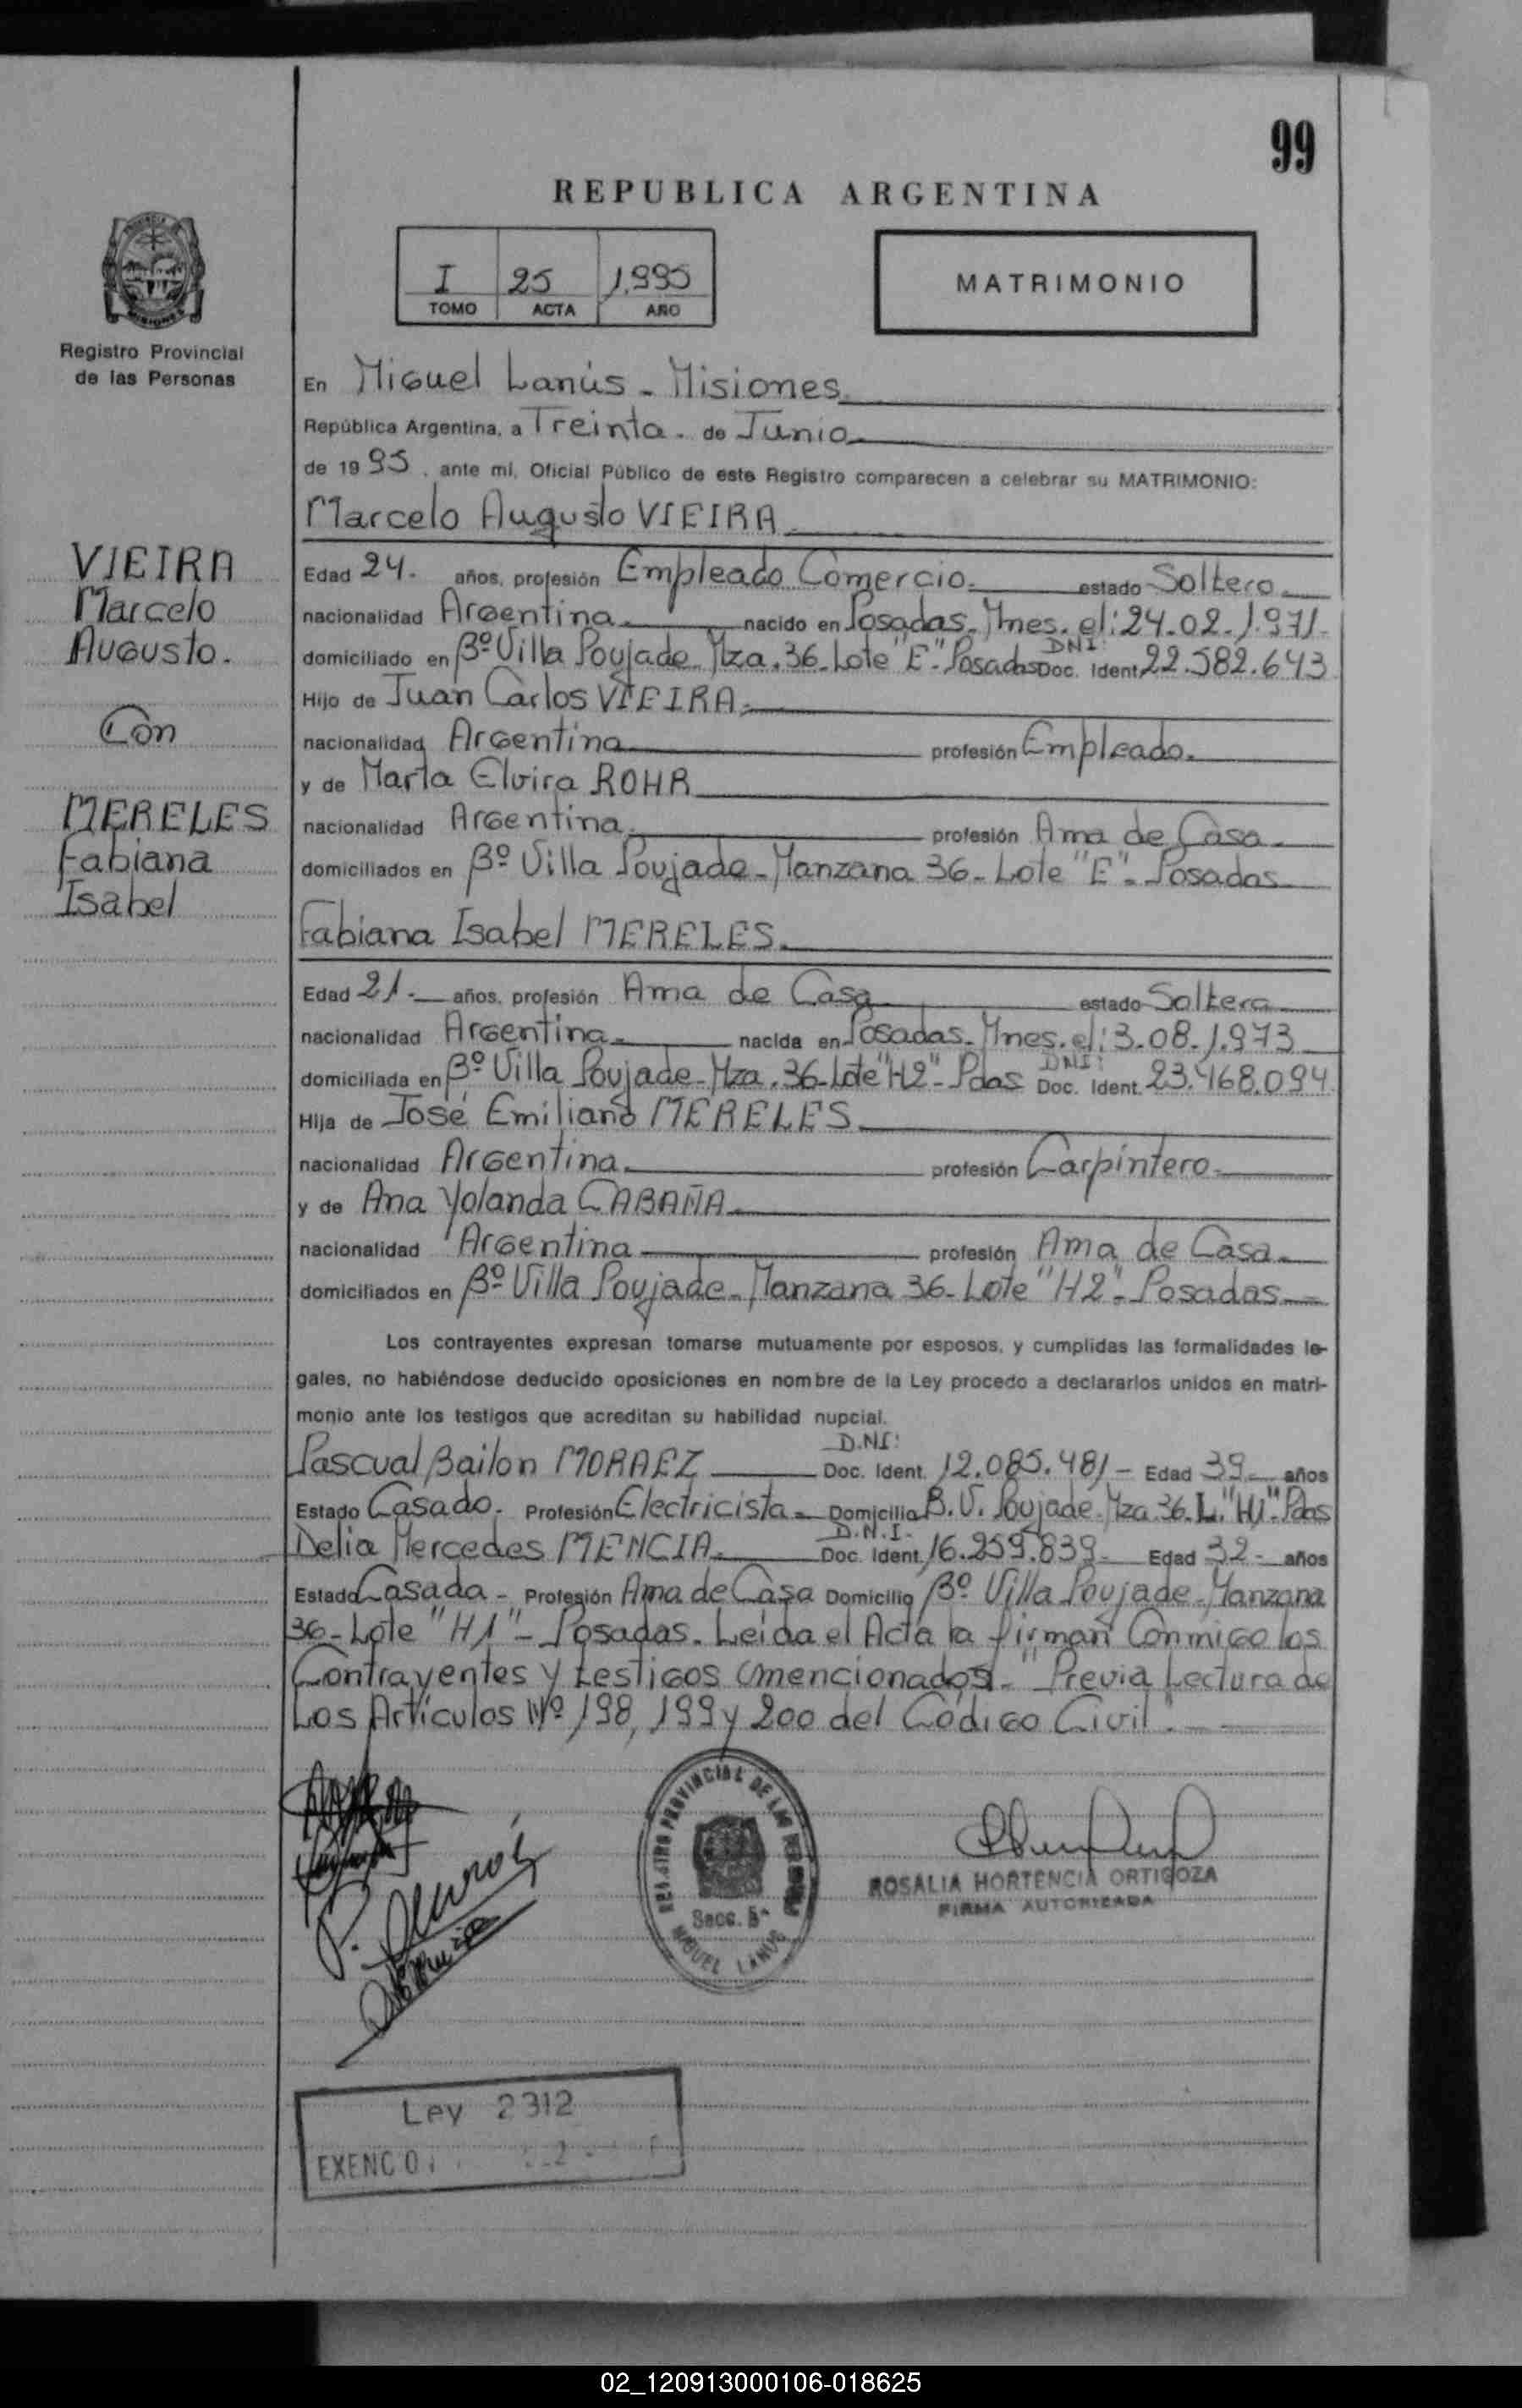 99
REPUBLICA ARGENTINA
I 25 1.995
TOMO ACTA AÑO
MATRIMONIO
Registro Provincial
de las Personas
En Miguel Lanús - Misiones
República Argentina, a Treinta. de Junio
de 19 95. ante mí, Oficial Público de este Registro comparecen a celebrar su MATRIMONIO:
Marcelo Augusto VIEIRA
VIEIRA
Marcelo
Augusto.
Con
MERELES
Fabiana
Isabel
Edad 24. años, profesión Empleado Comercio. estado Soltero
nacionalidad Argentina nacido en Posadas - Mnes. el: 24-02-1.971-
domiciliado en Bº Villa Poujade - Mza. 36 - Lote "E" - Posadas DNI: Doc. Ident. 22.582.643
Hijo de Juan Carlos VIEIRA
nacionalidad Argentina profesión Empleado.
y de Marta Elvira ROHR
nacionalidad Argentina profesión Ama de Casa
domiciliados en Bº Villa Poujade - Manzana 36 - Lote "E" - Posadas
Fabiana Isabel MERELES
Edad 21. años, profesión Ama de Casa estado Soltera
nacionalidad Argentina nacida en Posadas - Mnes. el: 3-08-1.973
domiciliada en Bº Villa Poujade - Mza. 36 - Lote "H2" - Pdas DNI: Doc. Ident. 23.468.094
Hija de José Emiliano MERELES
nacionalidad Argentina profesión Carpintero
y de Ana Yolanda CABAÑA
nacionalidad Argentina profesión Ama de Casa
domiciliados en Bº Villa Poujade - Manzana 36 - Lote "H2" - Posadas
Los contrayentes expresan tomarse mutuamente por esposos, y cumplidas las formalidades le-
gales, no habiéndose deducido oposiciones en nombre de la Ley procedo a declararlos unidos en matri-
monio ante los testigos que acreditan su habilidad nupcial.
Pascual Bailon MORAEZ D.N.I: Doc. Ident. 12.085.481 - Edad 39 años
Estado Casado. Profesión Electricista Domicilio B.V. Poujade - Mza 36. L. "H1" - Pdas
Delia Mercedes MENCIA D.N.I. Doc. Ident. 16.259.839 Edad 32 - años
Estado Casada - Profesión Ama de Casa Domicilio Bº Villa Poujade - Manzana
36 - Lote "H1" - Posadas. Leída el Acta la firman Conmigo los
Contrayentes y testigos (mencionados) - "Previa Lectura de
Los Artículos Nº 198, 199 y 200 del Código Civil"
REGISTRO PROVINCIAL DE LAS PERSONAS
Secc. 5ª
MIGUEL LANUS
ROSALIA HORTENCIA ORTIGOZA
FIRMA AUTORIZADA
Ley 2312
02_120913000106-018625